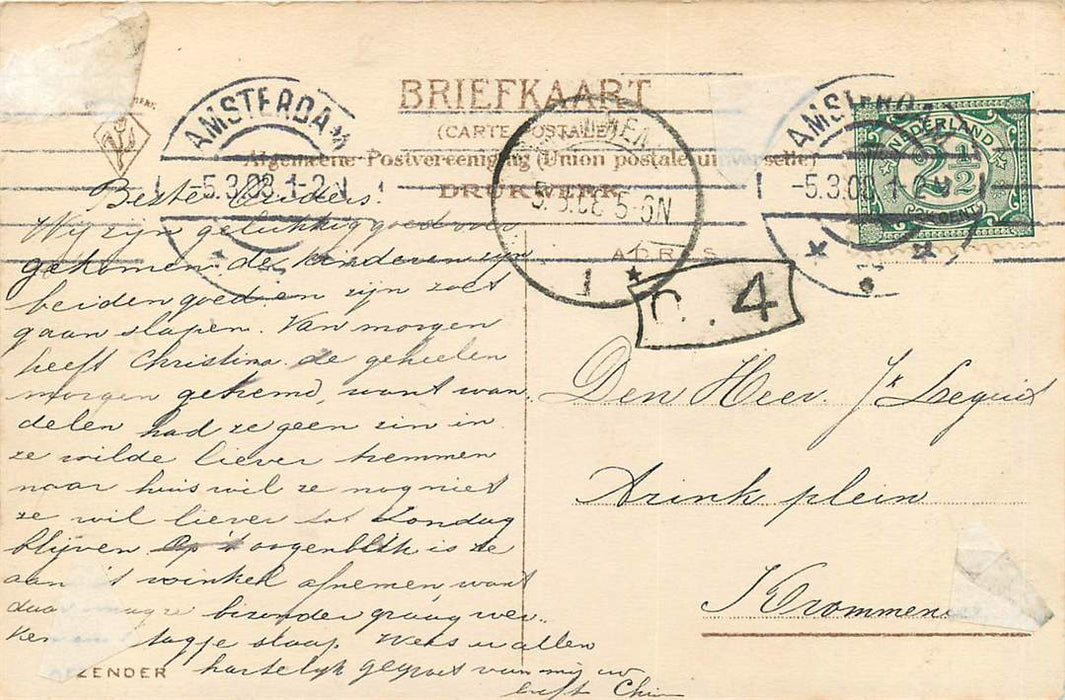 BRIEFKAART
(CARTE POSTALE)
Algemeene Postvereeniging (Union postale universelle)
DRUKWERK
AMSTERDAM
-5.3.08 1-2N
5.3.08 5-6N
1
AMSTERDAM
-5.3.08 1-2N
NEDERLAND
2 1/2
CENT
ADRES
4
Beste Ouders!
Wij zijn gelukkig goed over
gekomen. de kinderen zijn
beiden goed en zijn zoet
gaan slapen. Van morgen
heeft Christina de geheelen
morgen gekemd, want wan
delen had ze geen zin in
ze wilde liever kemmen
naar huis wil ze nog niet
ze wil liever tot Zondag
blijven Op 't oogenblik is ze
aan 't winkel afnemen, want
daar mag ze bizonder graag wer
ken slaap. Wees u allen
hartelijk gegroet van mij uw
Den Heer Jr
Arink plein
Krommenie
AFZENDER